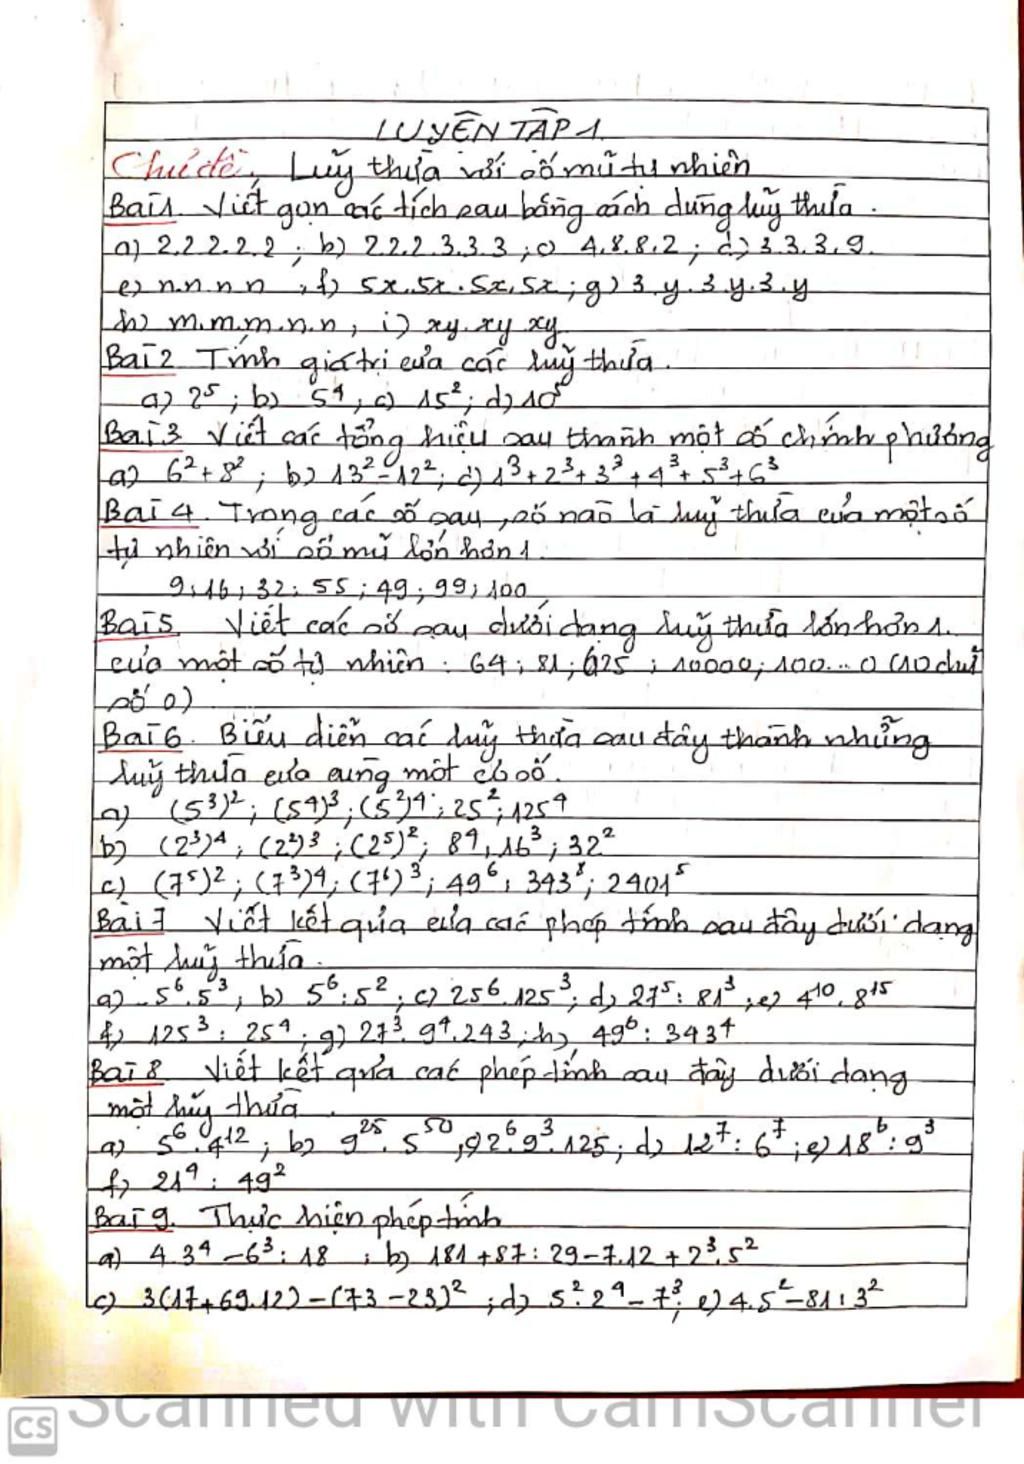 LUYỆN TẬP 1.
Chủ đề. Luỹ thừa với số mũ tự nhiên
Bài 1. Viết gọn các tích sau bằng cách dùng luỹ thừa.
a) 2.2.2.2.2 ; b) 2.2.2.3.3.3 ; c) 4.8.8.2 ; d) 3.3.3.9.
e) n.n.n.n ; f) 5x.5x.5x.5x ; g) 3.y.3.y.3.y
h) m.m.m.n.n ; i) xy.xy xy
Bài 2 Tính giá trị của các luỹ thừa.
a) 2⁵ ; b) 5⁴ ; c) 15² ; d) 10⁵
Bài 3 Viết các tổng hiệu sau thành một số chính phương
a) 6² + 8² ; b) 13² - 12² ; c) 1³ + 2³ + 3³ + 4³ + 5³ + 6³
Bài 4. Trong các số sau, số nào là luỹ thừa của một số
tự nhiên với số mũ lớn hơn 1.
9 ; 16 ; 32 ; 55 ; 49 ; 99 ; 100
Bài 5. Viết các số sau dưới dạng luỹ thừa lớn hơn 1.
của một số tự nhiên : 64 ; 81 ; 625 ; 10000 ; 100...0 (10 chữ
số 0)
Bài 6. Biểu diễn các luỹ thừa sau đây thành những
luỹ thừa của cùng một cơ số.
a) (5³)² ; (5⁴)³ ; (5²)⁴ ; 25² ; 125⁴
b) (2³)⁴ ; (2²)³ ; (2⁵)² ; 8⁴ ; 16³ ; 32²
c) (7⁵)² ; (7³)⁴ ; (7⁶)³ ; 49⁶ ; 343⁸ ; 2401⁵
Bài 7 Viết kết quả của các phép tính sau đây dưới dạng
một luỹ thừa.
a) 5⁶.5³ ; b) 5⁶:5² ; c) 25⁶.125³ ; d) 27⁵ : 81³ ; e) 4¹⁰.8¹⁵
f) 125³ : 25⁴ ; g) 27³.9⁴.243 ; h) 49⁶ : 343⁴
Bài 8 Viết kết quả các phép tính sau đây dưới dạng
một lũy thừa.
a) 5⁶.4¹² ; b) 9²⁵.5⁵⁰ ; c) 2⁶.9³.125 ; d) 12⁷ : 6⁷ ; e) 18⁶ : 9³
f) 21⁴ : 49²
Bài 9. Thực hiện phép tính
a) 4.3⁴ - 6³ : 18 ; b) 181 + 87 : 29 - 7.12 + 2³.5²
c) 3(17 + 69.12) - (73 - 23)² ; d) 5².2⁴ - 7³ ; e) 4.5² - 81 : 3²
CS Scanned with CamScanner